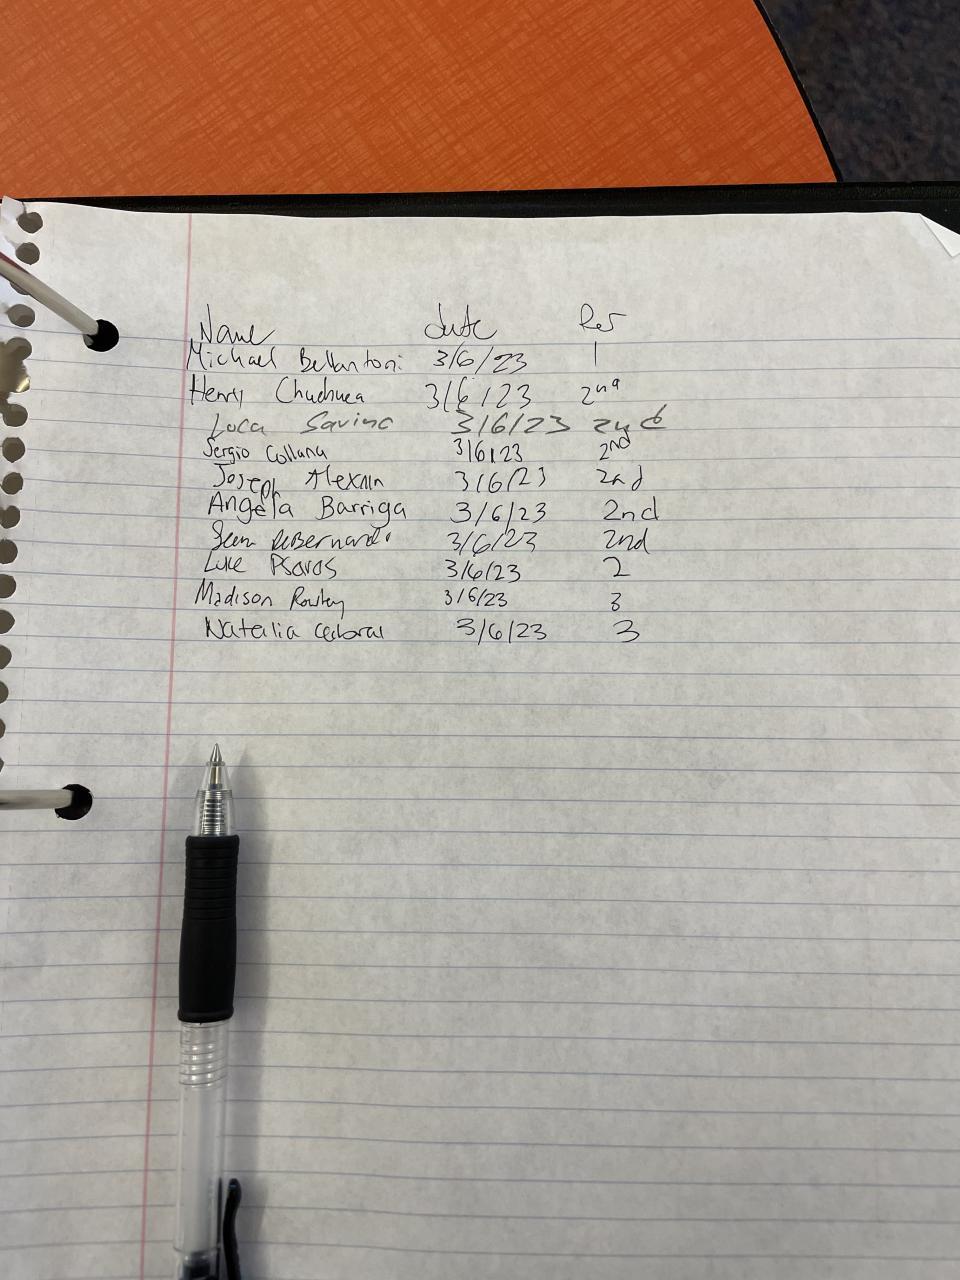 Name date Per
Michael Bellantoni 3/6/23 1
Henry Chuchuca 3/6/23 2nd
Luca Savino 3/6/23 2nd
Sergio Collana 3/6/23 2nd
Joseph 3/6/23 2nd
Angela Barriga 3/6/23 2nd
Sean DeBernardo 3/6/23 2nd
Luke Psaros 3/6/23 2
Madison 3/6/23 3
Natalia 3/6/23 3